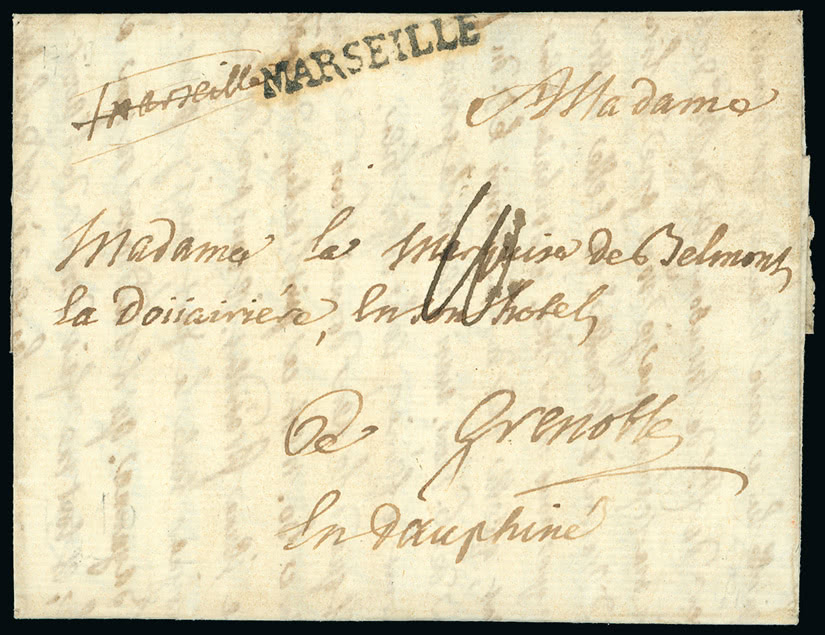 Marseille MARSEILLE
A Madame
Madame la Marquise de Belmont
la Doüairiére, En son hotel
A Grenoble
En dauphiné